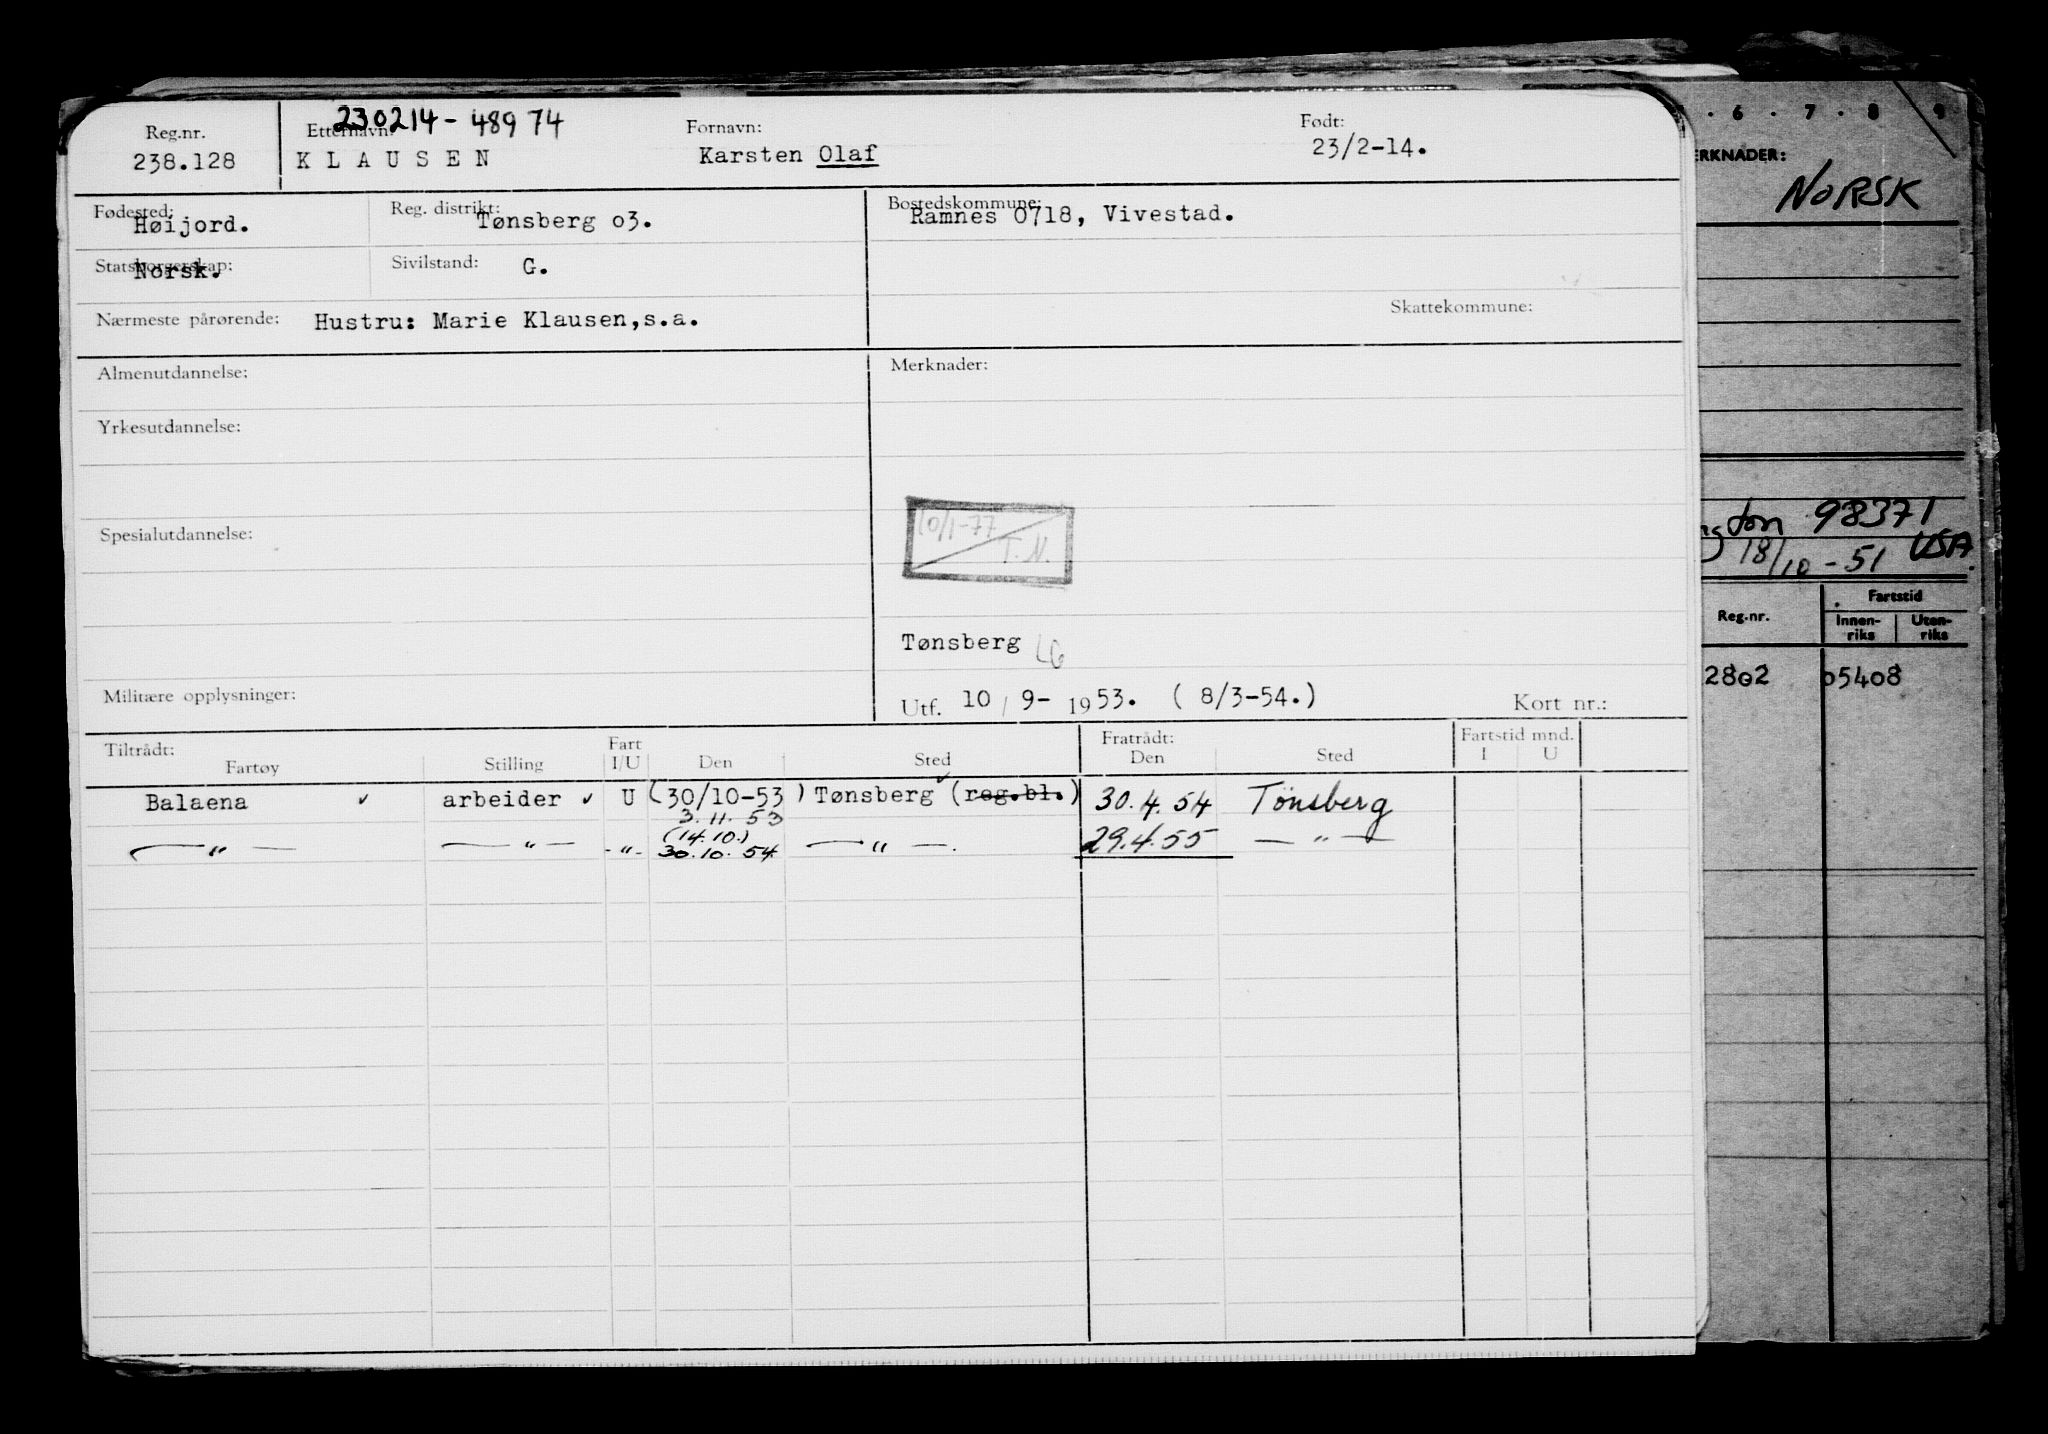 230214-48974
Reg.nr. Etternavn: Fornavn: Født:
238.128 KLAUSEN Karsten Olaf 23/2-14.
Fødested: Reg. distrikt: Bostedskommune:
Høijord. Tønsberg o3. Ramnes 0718, Vivestad.
Statsborgerskap: Sivilstand:
Norsk. G.
Skattekommune:
Nærmeste pårørende: Hustru: Marie Klausen,s.a.
Almenutdannelse: Merknader:
Yrkesutdannelse:
10/1-77
T.N.
Spesialutdannelse:
Tønsberg LG
Militære opplysninger:
Utf. 10/9-1953. ( 8/3-54.) Kort nr.:
Tiltrådt: Fart Fratrådt: Fartstid mnd.
Fartøy Stilling I/U Den Sted Den Sted I U
Balaena ✓ arbeider ✓ U (30/10-53) Tønsberg ✓ (reg.bl.) 30.4.54 Tönsberg
3.11.53
(14.10.)
—"— —"— -"- 30.10.54 —"—. 29.4.55 —"—
. 6 . 7 . 8 9
ERKNADER:
NORSK
ton 98371
18/10-51 USA.
Reg.nr. Fartstid
Innen-riks Uten-riks
2802 05408